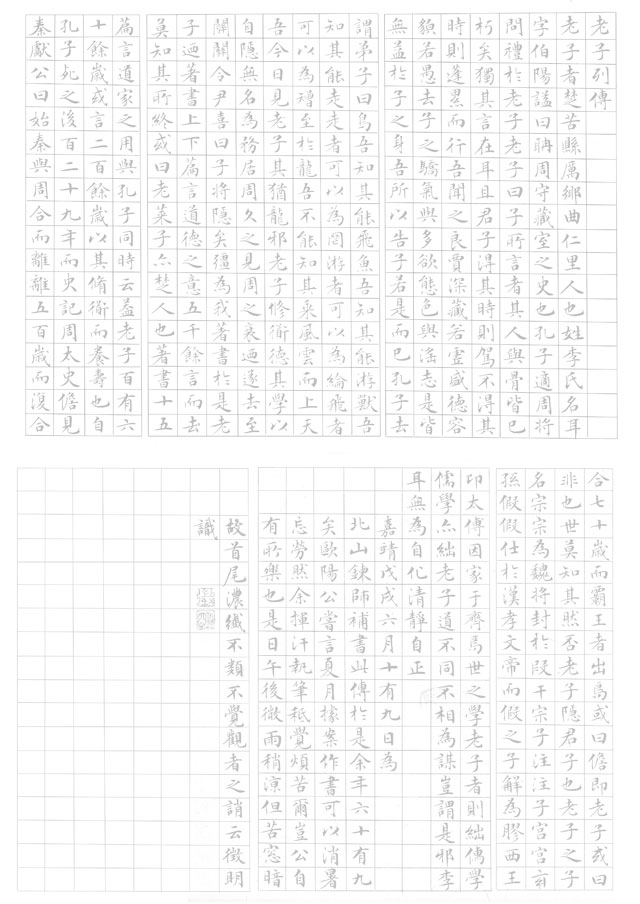 老子列傳
老子者楚苦縣厲鄉曲仁里人也姓李氏名耳
字伯陽謚曰聃周守藏室之史也孔子適周將
問禮於老子老子曰子所言者其人與骨皆已
朽矣獨其言在耳且君子得其時則駕不得其
時則蓬累而行吾聞之良賈深藏若虛盛德容
貌若愚去子之驕氣與多欲態色與淫志是皆
無益於子之身吾所以告子若是而已孔子去
謂弟子曰鳥吾知其能飛魚吾知其能游獸吾
知其能走走者可以為罔游者可以為綸飛者
可以為矰至於龍吾不能知其乘風雲而上天
吾今日見老子其猶龍邪老子修衜德其學以
自隱無名為務居周久之見周之衰迺遂去至
關關令尹喜曰子將隱矣彊為我著書於是老
子迺著書上下篇言道德之意五千餘言而去
莫知其所終或曰老萊子亦楚人也著書十五
篇言道家之用與孔子同時云蓋老子百有六
十餘歲或言二百餘歲以其脩衜而養壽也自
孔子死之後百二十九年而史記周太史儋見
秦獻公曰始秦與周合而離離五百歲而復合
合七十歲而霸王者出焉或曰儋即老子或曰
非也世莫知其然否老子隱君子也老子之子
名宗宗為魏將封於段干宗子注注子宮宮玄
孫假假仕於漢孝文帝而假之子解為膠西王
卬太傅因家于齊焉世之學老子者則絀儒學
儒學亦絀老子道不同不相為謀豈謂是邪李
耳無為自化清靜自正
嘉靖戊戌六月十有九日為
北山鍊師補書此傳於是余年六十有九
矣歐陽公嘗言夏月據案作書可以消暑
忘勞然余揮汗執筆秪覺煩苦爾豈公自
有所樂也是日午後微雨稍涼但苦窓暗
故首尾濃纖不類不覺觀者之誚云徵明
識